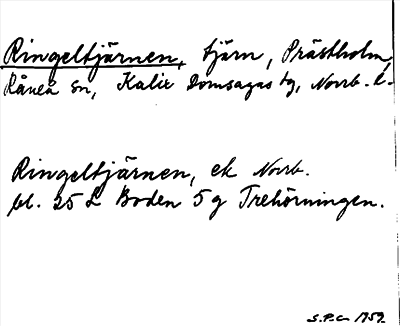 Ringeltjärnen, tjärn, Prästholm,
Råneå sn, Kalix Domsagas tg, Norrb. l.
Ringeltjärnen, ek Norrb.
bl. 25 L Boden 5 g Trehörningen.
S.P.C. 1959.